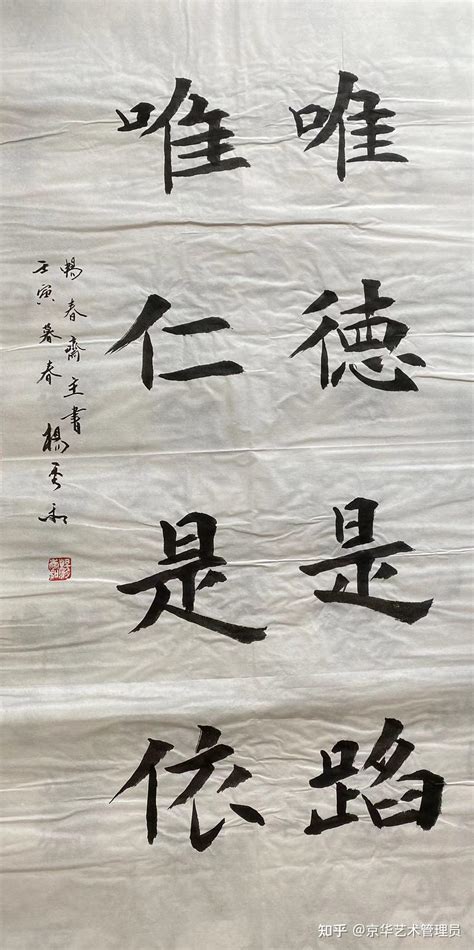 唯德是蹈
唯仁是依
壬寅暮春
暢春齋主書楊秀和
知乎 @京华艺术管理员